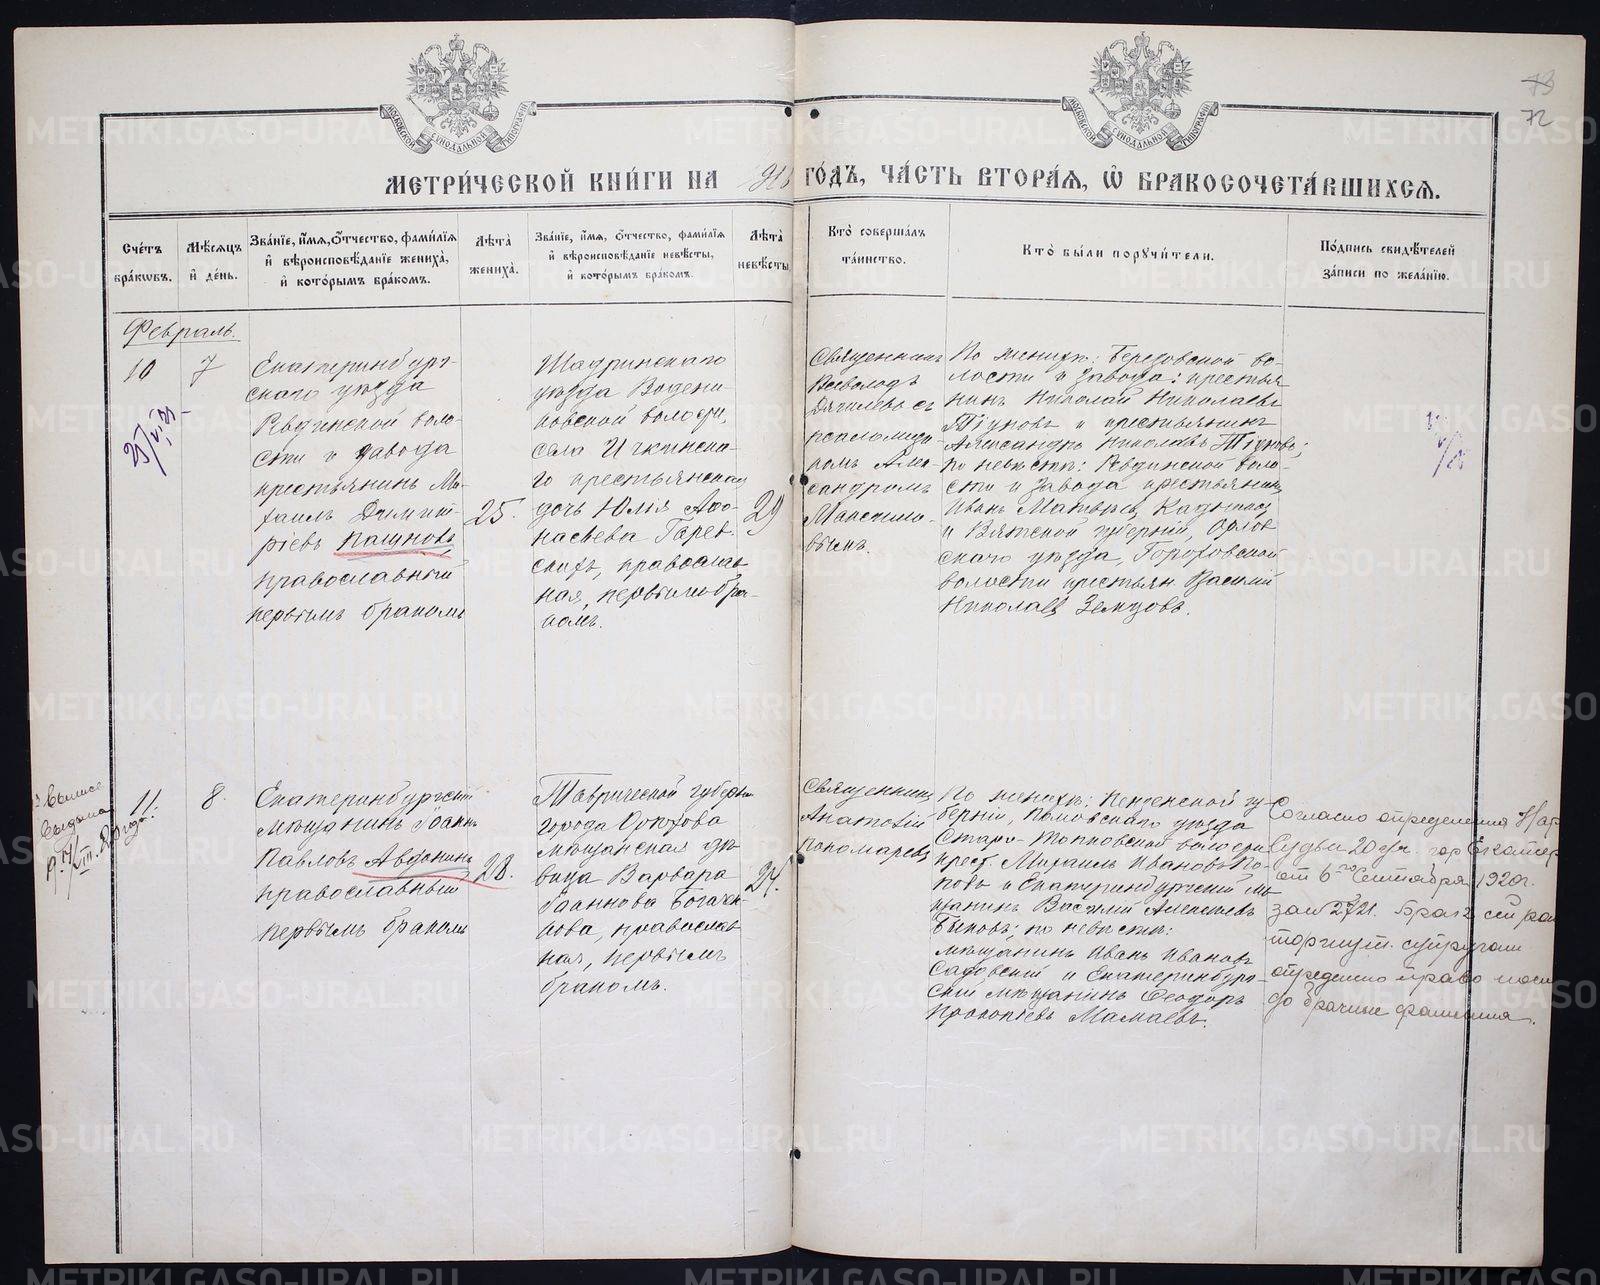 73
72
МОСКОВСКОЙ СѴНОДАЛЬНОЙ ТИПОГРАФІИ
МОСКОВСКОЙ СѴНОДАЛЬНОЙ ТИПОГРАФІИ
МЕТРИ́ЧЕСКОЙ КНИ́ГИ НА ГО́ДЪ, ЧА́СТЬ ВТОРА́Ѧ, Ѡ҆ БРАКОСОЧЕТА́ВШИХСѦ.
Сче́тъ бра́кѡвъ.
Мѣ́сѧцъ и҆ де́нь.
Зва́нїе, и҆́мѧ, о҆́тчество, фами́лїѧ и҆ вѣроисповѣ́данїе жениха̀, и҆ кото́рымъ бра́комъ.
Лѣ́та̀ жениха̀.
Зва́нїе, и҆́мѧ, о҆́тчество, фами́лїѧ и҆ вѣроисповѣ́данїе невѣ́сты, и҆ кото́рымъ бра́комъ.
Лѣ́та̀ невѣ́сты.
Кто̀ соверша́лъ та́инство.
Кто̀ бы́ли порꙋчи́тели.
По́дпись свидѣ́телей за́писи по жела́нїю.
Февраль.
10
7
Екатеринбург-
скаго уѣзда
Ревдинской воло-
сти и завода
крестьянинъ Ми-
хаилъ Димит-
ріевъ Пашновъ,
православный
первымъ бракомъ
25.
Шадринскаго
уѣзда
волости,
села Ичкинска-
го крестьянская
дочь Юлія Аѳа-
насьева
православ-
ная, первымъ бра-
комъ.
29
Священникъ
Всеволодъ
Дягилевъ съ
псаломщи-
комъ Алек-
сандромъ
По женихѣ: Березовской во-
лости и завода: крестья-
нинъ Николай Николаевъ
Тіуновъ и крестьянинъ
Александръ Николаевъ Тіуновъ;
по невѣстѣ: Ревдинской воло-
сти и завода крестьянинъ
Иванъ Матвѣевъ
и Вятской губерніи, Орлов-
скаго уѣзда, Гороховской
волости крестьян. Василій
Николаевъ Земцовъ.
Выписъ
выдана
11.
8.
Екатеринбургскій
мѣщанинъ Іоаннъ
Павловъ Авдонинъ
православный
первымъ бракомъ
28.
Таврической губерніи
города Орѣхова
мѣщанская дѣ-
вица Варвара
Іоаннова
православ-
ная, первымъ
бракомъ.
24.
Священникъ
Анатолій
Пономаревъ
По женихѣ: Пензенской гу-
берніи, уѣзда
Старо- волости
крест. Михаилъ Ивановъ По-
повъ и Екатеринбургскій мѣ-
щанинъ Василій Алексѣевъ
Быковъ; по невѣстѣ:
мѣщанинъ Иванъ Ивановъ
Садовскій и Екатеринбург-
скій мѣщанинъ Ѳеодоръ
Прокопіевъ Мамаевъ.
Согласно определения Нар.
Судьи 20 уч. гор. Екатер.
от 6го Сентября 1920г.
за № 2721. брак сей рас-
торгнут. супругам
определено право носи
до брачные фамилия.
METRIKI.GASO-URAL.RU